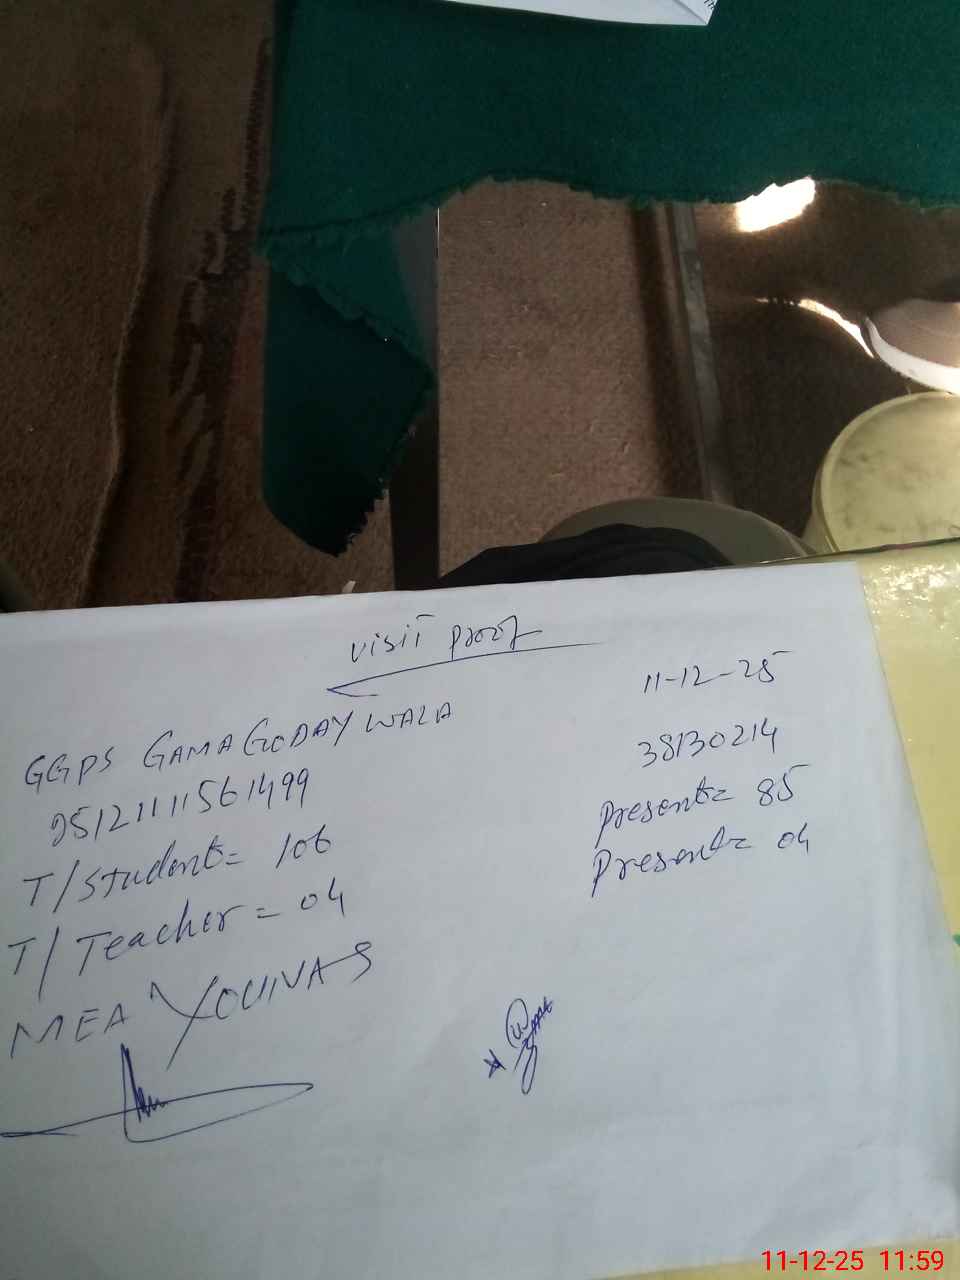 visit proof
11-12-25
GGPS GAMA GODAY WALA
38130214
T/Student= 106
Present= 85
T/Teacher= 04
Present= 04
MEA YOUNAS
11-12-25 11:59